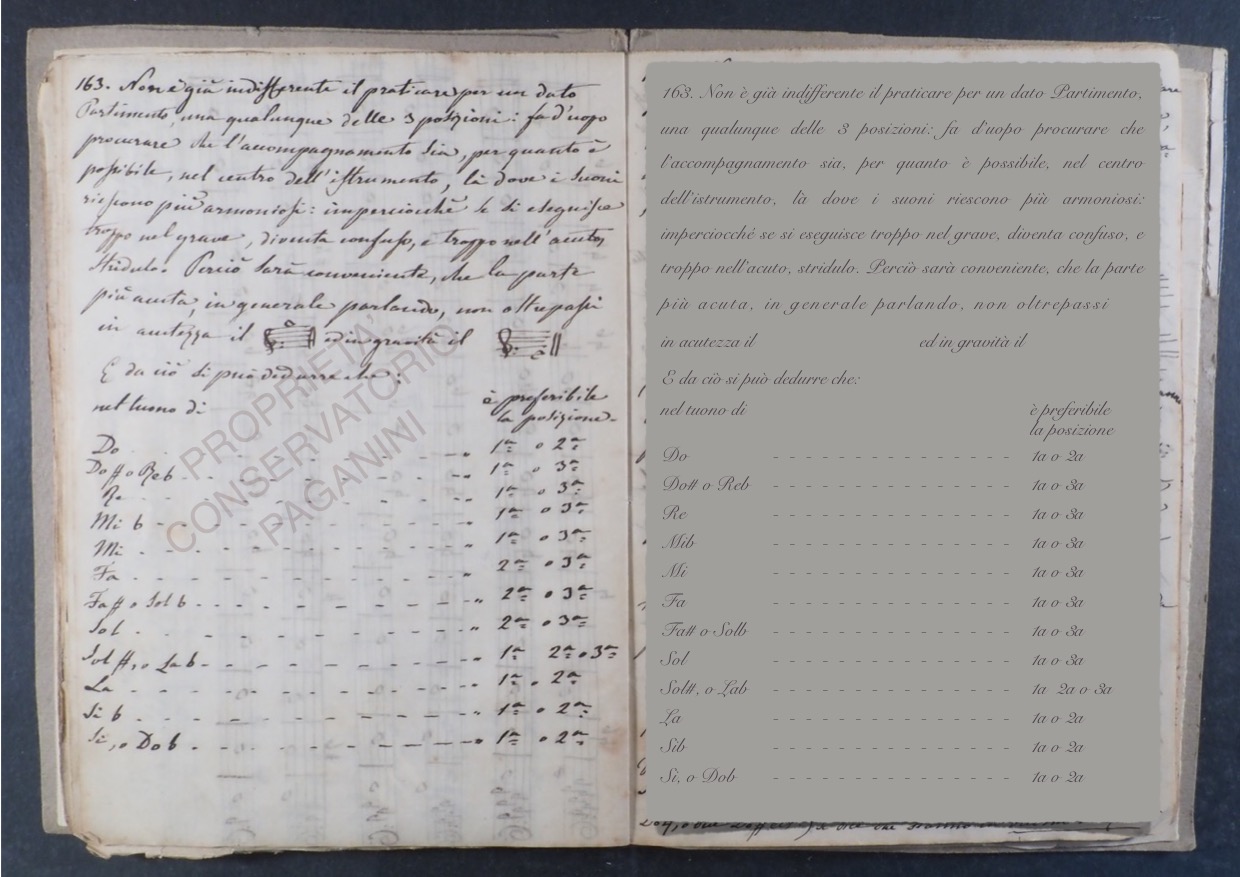 163. Non è già indifferente il praticare per un dato
Partimento, una qualunque delle 3 posizioni: fa d'uopo
procurare che l'accompagnamento sia, per quanto è
possibile, nel centro dell'istrumento, là dove i suoni
riescono più armoniosi: imperciocchè se si eseguisce
troppo nel grave, diventa confuso, e troppo nell'acuto,
stridulo. Perciò sarà conveniente, che la parte
più acuta, in generale parlando, non oltrepassi
in acutezza il ed in gravità il
E da ciò si può dedurre che:
nel tuono di è preferibile
la posizione.
Do - - - - - - - - - - „ 1a o 2a
Do# o Reb - - - - - - - - „ 1a o 3a
Re - - - - - - - - - - „ 1a o 3a
Mi b - - - - - - - - - „ 1a o 3a
Mi - - - - - - - - - - „ 1a o 3a
Fa - - - - - - - - - - „ 2a o 3a
Fa# o Sol b - - - - - - - - „ 2a o 3a
Sol - - - - - - - - - „ 2a o 3a
Sol #, o La b - - - - - - - - „ 1a 2a o 3a
La - - - - - - - - - - „ 1a o 2a
Si b - - - - - - - - - „ 1a o 2a
Si, o Do b - - - - - - - - „ 1a o 2a
PROPRIETÀ
CONSERVATORIO
PAGANINI
163. Non è già indifferente il praticare per un dato Partimento,
una qualunque delle 3 posizioni: fa d'uopo procurare che
l'accompagnamento sia, per quanto è possibile, nel centro
dell'istrumento, là dove i suoni riescono più armoniosi:
imperciocché se si eseguisce troppo nel grave, diventa confuso, e
troppo nell'acuto, stridulo. Perciò sarà conveniente, che la parte
più acuta, in generale parlando, non oltrepassi
in acutezza il ed in gravità il
E da ciò si può dedurre che:
nel tuono di è preferibile
la posizione
Do - - - - - - - - - - - - - - - - 1a o 2a
Do# o Reb - - - - - - - - - - - - - - - - 1a o 3a
Re - - - - - - - - - - - - - - - - 1a o 3a
Mib - - - - - - - - - - - - - - - - 1a o 3a
Mi - - - - - - - - - - - - - - - - 1a o 3a
Fa - - - - - - - - - - - - - - - - 1a o 3a
Fa# o Solb - - - - - - - - - - - - - - - - 1a o 3a
Sol - - - - - - - - - - - - - - - - 1a o 3a
Sol#, o Lab - - - - - - - - - - - - - - - - 1a 2a o 3a
La - - - - - - - - - - - - - - - - 1a o 2a
Sib - - - - - - - - - - - - - - - - 1a o 2a
Si, o Dob - - - - - - - - - - - - - - - - 1a o 2a